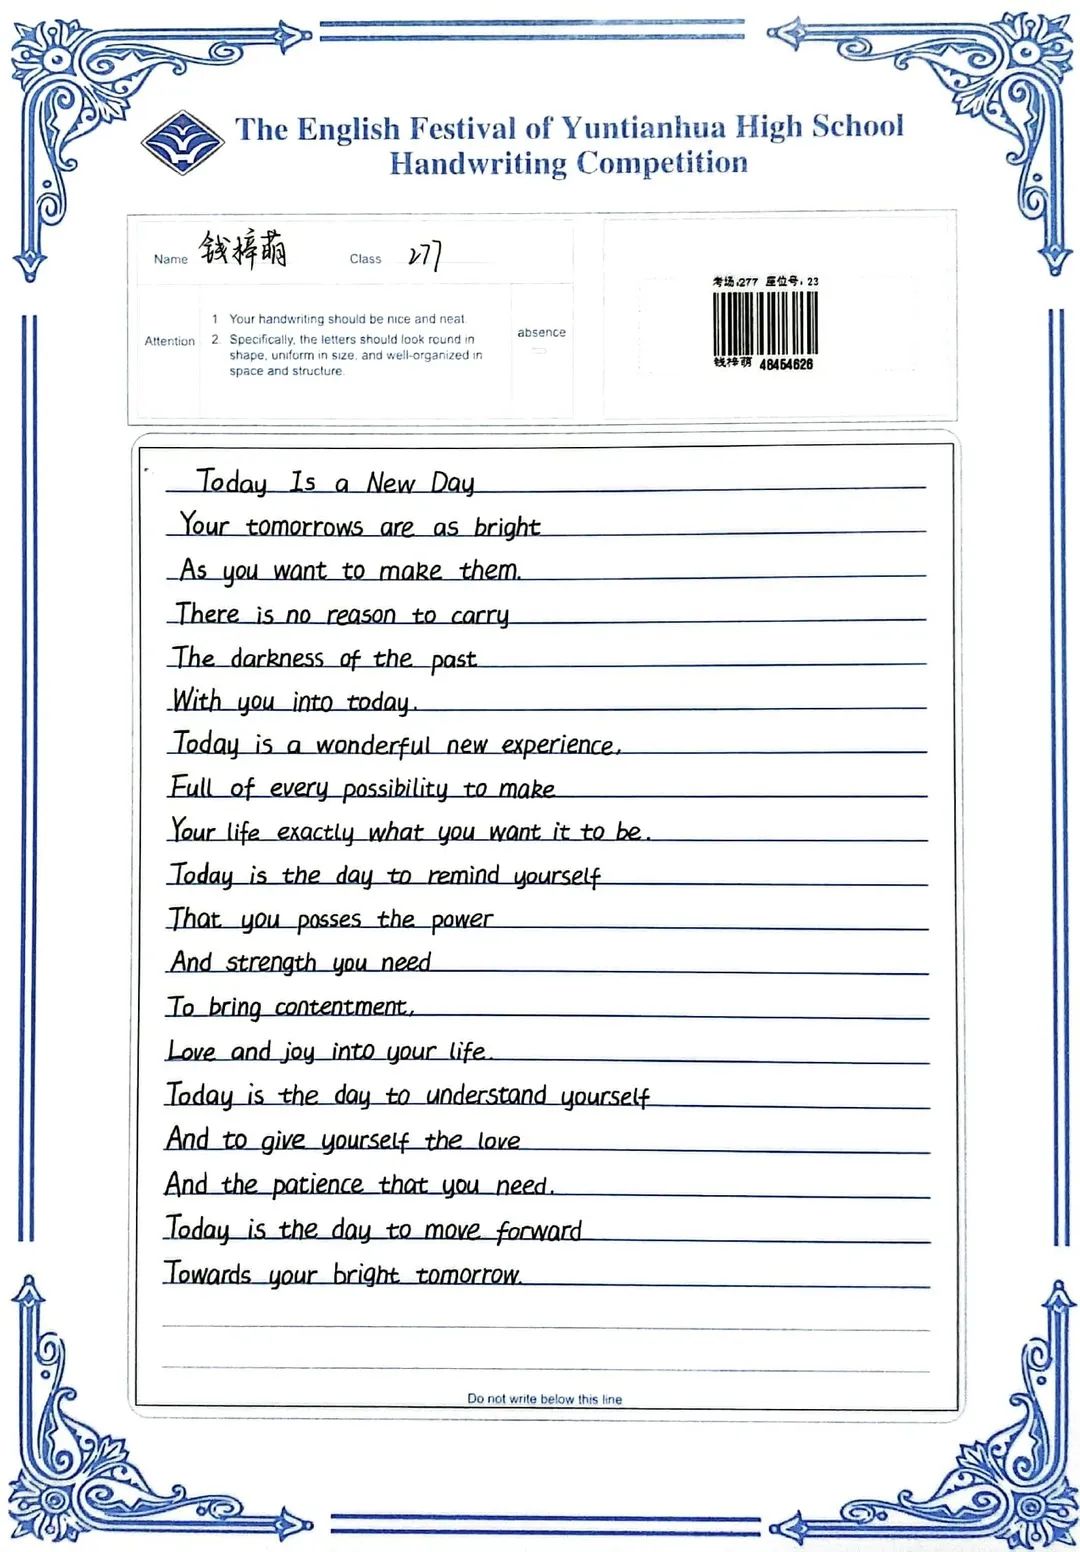 The English Festival of Yuntianhua High School
Handwriting Competition
Name 钱梓萌 Class 277
考场:277 座位号: 23
钱梓萌 48454626
Attention
1 Your handwriting should be nice and neat.
2. Specifically, the letters should look round in
shape, uniform in size, and well-organized in
space and structure.
absence
Today Is a New Day
Your tomorrows are as bright
As you want to make them.
There is no reason to carry
The darkness of the past
With you into today.
Today is a wonderful new experience,
Full of every possibility to make
Your life exactly what you want it to be.
Today is the day to remind yourself
That you posses the power
And strength you need
To bring contentment,
Love and joy into your life.
Today is the day to understand yourself
And to give yourself the love
And the patience that you need.
Today is the day to move forward
Towards your bright tomorrow.
Do not write below this line